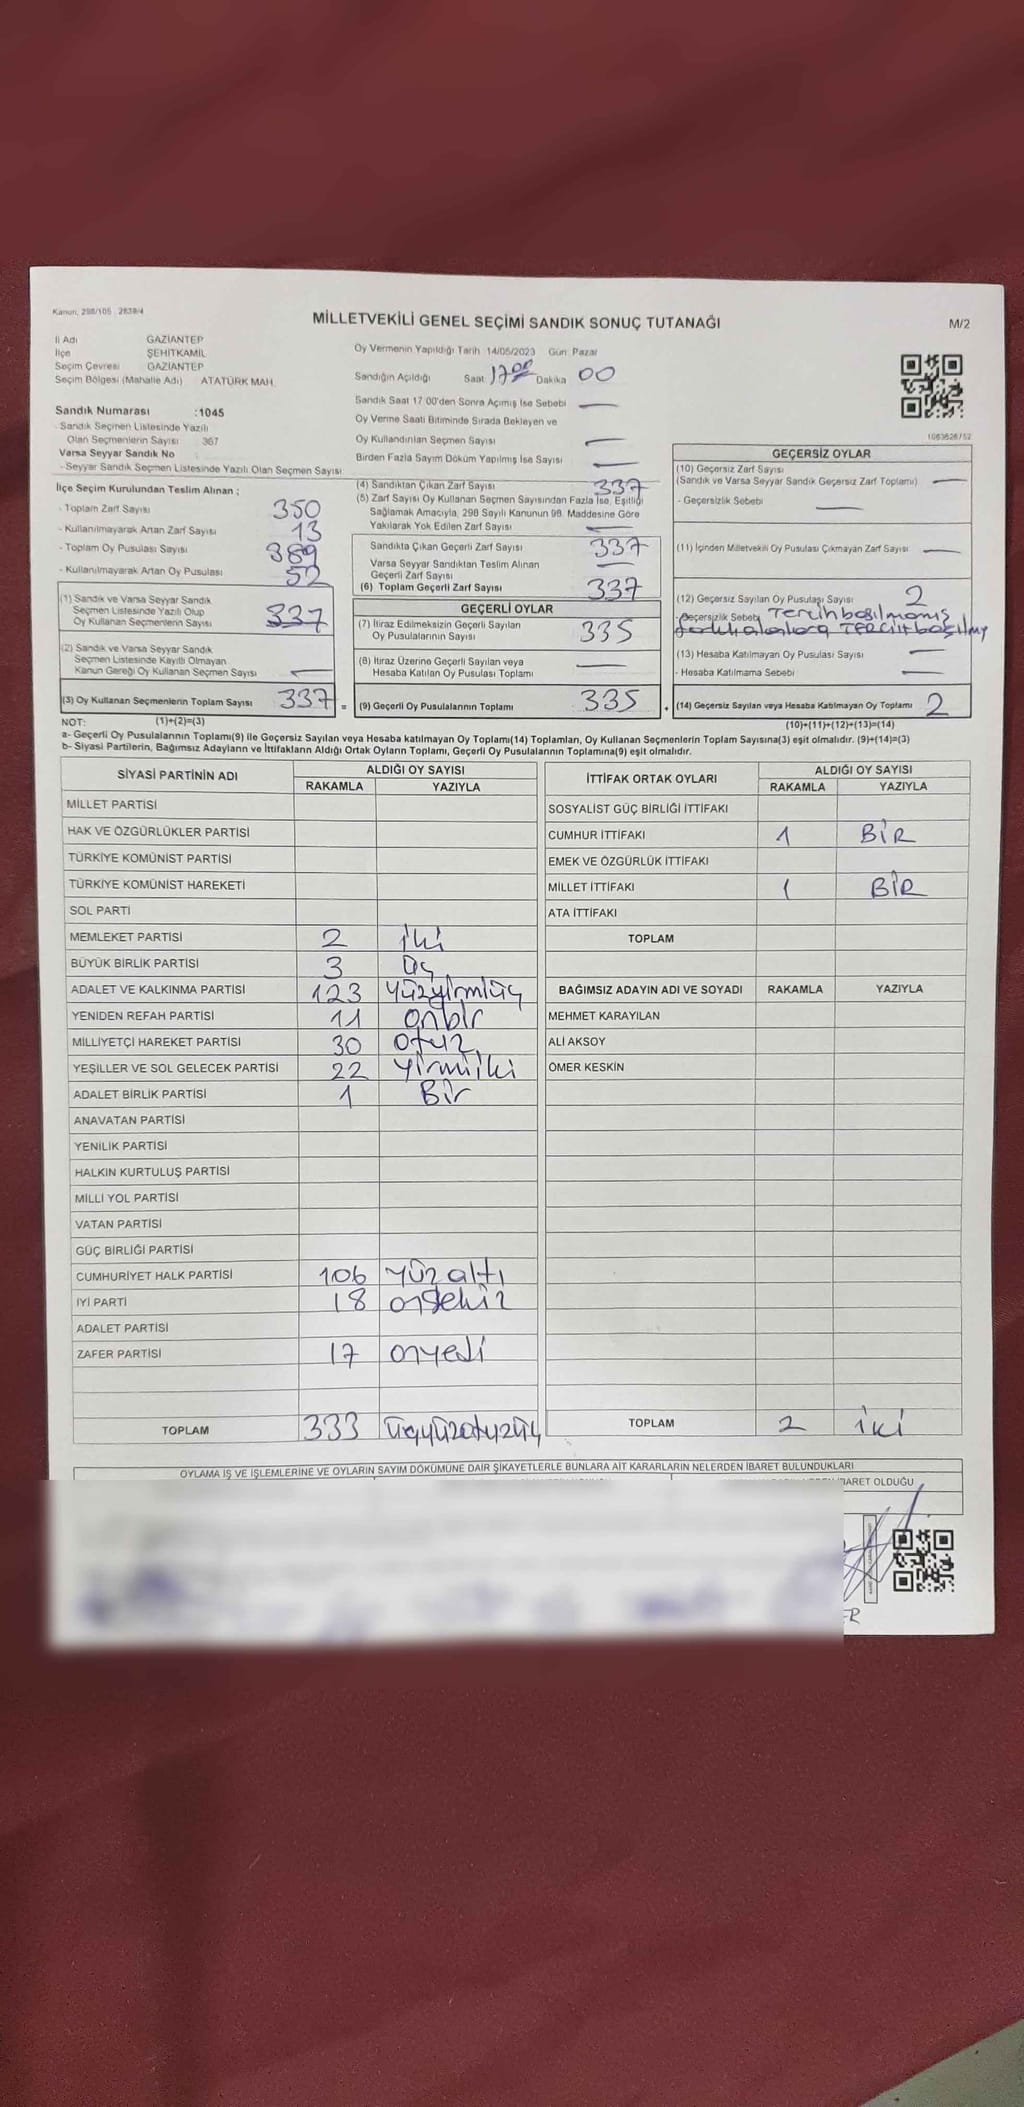 Kanun, 298/105 2839/4
MİLLETVEKİLİ GENEL SEÇİMİ SANDIK SONUÇ TUTANAĞI
M/2
İl Adı GAZİANTEP
İlçe ŞEHİTKAMİL
Seçim Çevresi GAZİANTEP
Seçim Bölgesi (Mahalle Adı) ATATÜRK MAH.
Sandık Numarası :1045
Sandık Seçmen Listesinde Yazılı
Olan Seçmenlerin Sayısı 367
Varsa Seyyar Sandık No
- Seyyar Sandık Seçmen Listesinde Yazılı Olan Seçmen Sayısı
Oy Vermenin Yapıldığı Tarih 14/05/2023 Gün: Pazar
Sandığın Açıldığı Saat 17 00 Dakika 00
Sandık Saat 17 00'den Sonra Açımış İse Sebebi —
Oy Verme Saati Bitiminde Sırada Bekleyen ve
Oy Kullandırılan Seçmen Sayısı —
Birden Fazla Sayım Döküm Yapılmış İse Sayısı —
1063626/52
İlçe Seçim Kurulundan Teslim Alınan ;
- Toplam Zarf Sayısı 350
- Kullanılmayarak Artan Zarf Sayısı 13
- Toplam Oy Pusulası Sayısı 389
- Kullanılmayarak Artan Oy Pusulası 52
(1) Sandık ve Varsa Seyyar Sandık
Seçmen Listesinde Yazılı Olup
Oy Kullanan Seçmenlerin Sayısı 337
(2) Sandık ve Varsa Seyyar Sandık
Seçmen Listesinde Kayıtlı Olmayan
Kanun Gereği Oy Kullanan Seçmen Sayısı —
(3) Oy Kullanan Seçmenlerin Toplam Sayısı 337 =
(4) Sandıktan Çıkan Zarf Sayısı 337
(5) Zarf Sayısı Oy Kullanan Seçmen Sayısından Fazla İse, Eşitliği
Sağlamak Amacıyla, 298 Sayılı Kanunun 98. Maddesine Göre
Yakılarak Yok Edilen Zarf Sayısı —
Sandıkta Çıkan Geçerli Zarf Sayısı 337
Varsa Seyyar Sandıktan Teslim Alınan
Geçerli Zarf Sayısı —
(6) Toplam Geçerli Zarf Sayısı 337
GEÇERLİ OYLAR
(7) İtiraz Edilmeksizin Geçerli Sayılan
Oy Pusulalarının Sayısı 335
(8) İtiraz Üzerine Geçerli Sayılan veya
Hesaba Katılan Oy Pusulası Toplamı —
(9) Geçerli Oy Pusulalarının Toplamı 335 +
GEÇERSİZ OYLAR
(10) Geçersiz Zarf Sayısı
(Sandık ve Varsa Seyyar Sandık Geçersiz Zarf Toplamı) —
- Geçersizlik Sebebi —
(11) İçinden Milletvekili Oy Pusulası Çıkmayan Zarf Sayısı —
(12) Geçersiz Sayılan Oy Pusulaşı Sayısı 2
- Geçersizlik Sebebi Tercih basılmamış
TERCİH
(13) Hesaba Katılmayan Oy Pusulası Sayısı —
- Hesaba Katılmama Sebebi —
(14) Geçersiz Sayılan veya Hesaba Katılmayan Oy Toplamı 2
NOT: (1)+(2)=(3)
(10)+(11)+(12)+(13)=(14)
a- Geçerli Oy Pusulalarının Toplamı(9) ile Geçersiz Sayılan veya Hesaba katılmayan Oy Toplamı(14) Toplamları, Oy Kullanan Seçmenlerin Toplam Sayısına(3) eşit olmalıdır. (9)+(14)=(3)
b- Siyasi Partilerin, Bağımsız Adayların ve İttifakların Aldığı Ortak Oyların Toplamı, Geçerli Oy Pusulalarının Toplamına(9) eşit olmalıdır.
SİYASİ PARTİNİN ADI ALDIĞI OY SAYISI
RAKAMLA YAZIYLA
MİLLET PARTİSİ
HAK VE ÖZGÜRLÜKLER PARTİSİ
TÜRKİYE KOMÜNİST PARTİSİ
TÜRKİYE KOMÜNİST HAREKETİ
SOL PARTİ
MEMLEKET PARTİSİ 2 iki
BÜYÜK BİRLİK PARTİSİ 3 üç
ADALET VE KALKINMA PARTİSİ 123 yüzyirmiüç
YENİDEN REFAH PARTİSİ 11 onbir
MİLLİYETÇİ HAREKET PARTİSİ 30 otuz
YEŞİLLER VE SOL GELECEK PARTİSİ 22 yirmiiki
ADALET BİRLİK PARTİSİ 1 Bir
ANAVATAN PARTİSİ
YENİLİK PARTİSİ
HALKIN KURTULUŞ PARTİSİ
MİLLİ YOL PARTİSİ
VATAN PARTİSİ
GÜÇ BİRLİĞİ PARTİSİ
CUMHURİYET HALK PARTİSİ 106 yüzaltı
İYİ PARTİ 18 onsekiz
ADALET PARTİSİ
ZAFER PARTİSİ 17 onyedi
TOPLAM 333 üçyüzotuzüç
İTTİFAK ORTAK OYLARI ALDIĞI OY SAYISI
RAKAMLA YAZIYLA
SOSYALİST GÜÇ BİRLİĞİ İTTİFAKI
CUMHUR İTTİFAKI 1 BİR
EMEK VE ÖZGÜRLÜK İTTİFAKI
MİLLET İTTİFAKI 1 BİR
ATA İTTİFAKI
TOPLAM
BAĞIMSIZ ADAYIN ADI VE SOYADI RAKAMLA YAZIYLA
MEHMET KARAYILAN
ALİ AKSOY
ÖMER KESKİN
TOPLAM 2 iki
OYLAMA İŞ VE İŞLEMLERİNE VE OYLARIN SAYIM DÖKÜMÜNE DAİR ŞİKAYETLERLE BUNLARA AİT KARARLARIN NELERDEN İBARET BULUNDUKLARI
İBARET OLDUĞU